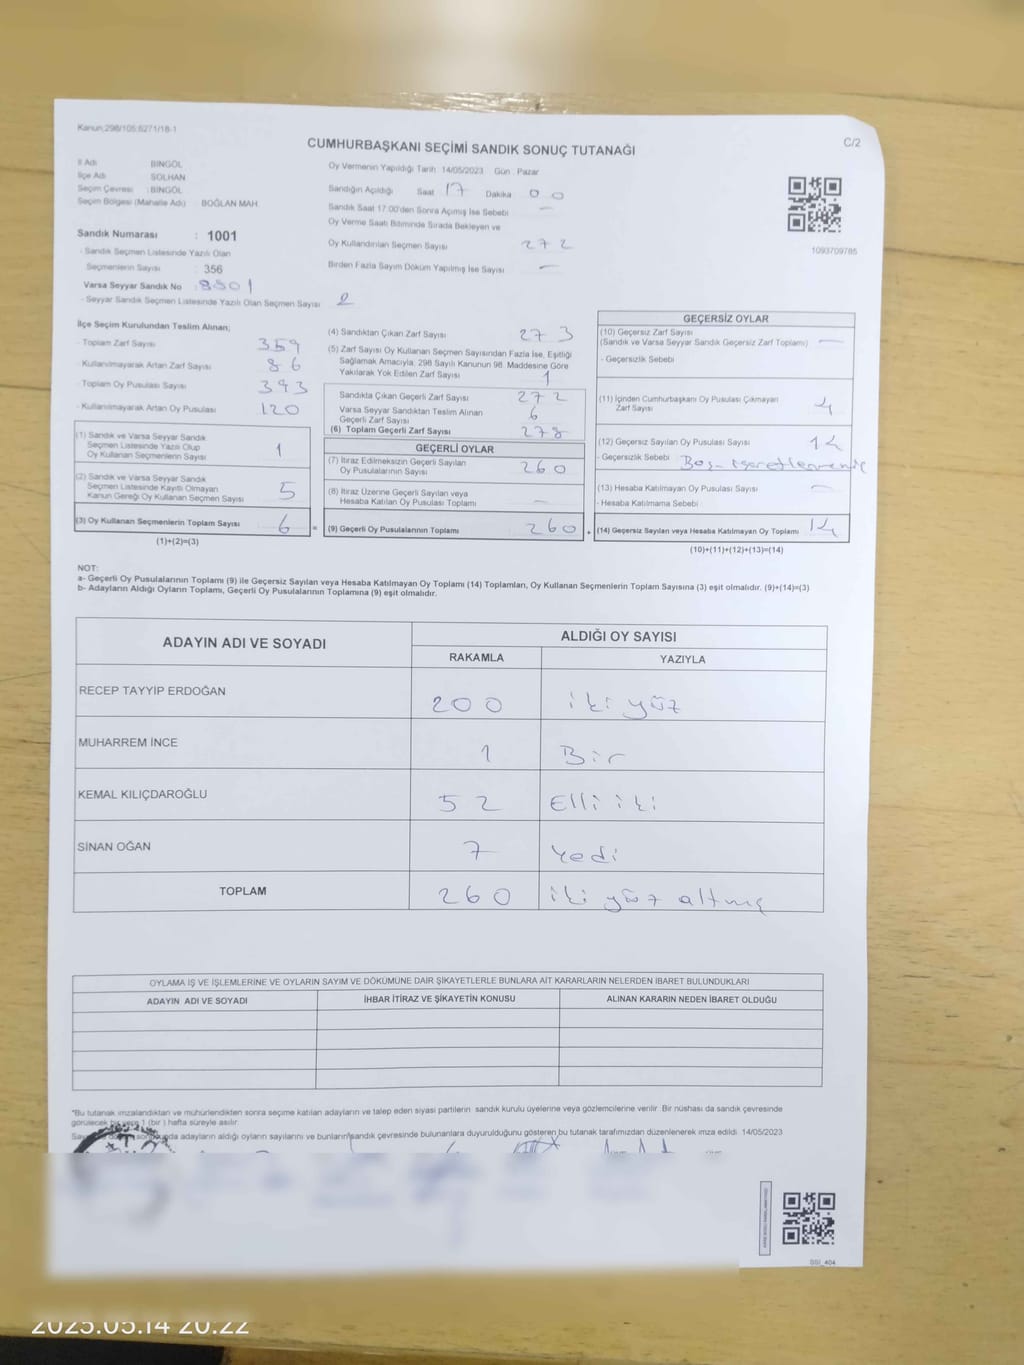 Kanun:298/105:6271/18-1
C/2
CUMHURBAŞKANI SEÇİMİ SANDIK SONUÇ TUTANAĞI
İl Adı BİNGÖL
İlçe Adı SOLHAN
Seçim Çevresi : BİNGÖL
Seçim Bölgesi (Mahalle Adı) BOĞLAN MAH.
Sandık Numarası : 1001
- Sandık Seçmen Listesinde Yazılı Olan
Seçmenlerin Sayısı : 356
Varsa Seyyar Sandık No : 8501
- Seyyar Sandık Seçmen Listesinde Yazılı Olan Seçmen Sayısı 2
Oy Vermenin Yapıldığı Tarih: 14/05/2023 Gün : Pazar
Sandığın Açıldığı Saat 17 Dakika 00
Sandık Saat 17:00'den Sonra Açımış İse Sebebi —
Oy Verme Saati Bitiminde Sırada Bekleyen ve
Oy Kullandırılan Seçmen Sayısı 272
Birden Fazla Sayım Döküm Yapılmış İse Sayısı —
1093709785
İlçe Seçim Kurulundan Teslim Alınan;
- Toplam Zarf Sayısı 359
- Kullanılmayarak Artan Zarf Sayısı 86
- Toplam Oy Pusulası Sayısı 393
- Kullanılmayarak Artan Oy Pusulası 120
(1) Sandık ve Varsa Seyyar Sandık
Seçmen Listesinde Yazılı Olup
Oy Kullanan Seçmenlerin Sayısı 1
(2) Sandık ve Varsa Seyyar Sandık
Seçmen Listesinde Kayıtlı Olmayan
Kanun Gereği Oy Kullanan Seçmen Sayısı 5
(3) Oy Kullanan Seçmenlerin Toplam Sayısı 6 =
(1)+(2)=(3)
(4) Sandıktan Çıkan Zarf Sayısı 273
(5) Zarf Sayısı Oy Kullanan Seçmen Sayısından Fazla İse, Eşitliği
Sağlamak Amacıyla, 298 Sayılı Kanunun 98. Maddesine Göre
Yakılarak Yok Edilen Zarf Sayısı 1
Sandıkta Çıkan Geçerli Zarf Sayısı 272
Varsa Seyyar Sandıktan Teslim Alınan
Geçerli Zarf Sayısı 6
(6) Toplam Geçerli Zarf Sayısı 278
GEÇERLİ OYLAR
(7) İtiraz Edilmeksizin Geçerli Sayılan
Oy Pusulalarının Sayısı 260
(8) İtiraz Üzerine Geçerli Sayılan veya
Hesaba Katılan Oy Pusulası Toplamı —
(9) Geçerli Oy Pusulalarının Toplamı 260 +
GEÇERSİZ OYLAR
(10) Geçersiz Zarf Sayısı
(Sandık ve Varsa Seyyar Sandık Geçersiz Zarf Toplamı) —
- Geçersizlik Sebebi
(11) İçinden Cumhurbaşkanı Oy Pusulası Çıkmayan
Zarf Sayısı 4
(12) Geçersiz Sayılan Oy Pusulası Sayısı 14
- Geçersizlik Sebebi Boş-
(13) Hesaba Katılmayan Oy Pusulası Sayısı —
- Hesaba Katılmama Sebebi
(14) Geçersiz Sayılan veya Hesaba Katılmayan Oy Toplamı 14
(10)+(11)+(12)+(13)=(14)
NOT:
a- Geçerli Oy Pusulalarının Toplamı (9) ile Geçersiz Sayılan veya Hesaba Katılmayan Oy Toplamı (14) Toplamları, Oy Kullanan Seçmenlerin Toplam Sayısına (3) eşit olmalıdır. (9)+(14)=(3)
b- Adayların Aldığı Oyların Toplamı, Geçerli Oy Pusulalarının Toplamına (9) eşit olmalıdır.
ADAYIN ADI VE SOYADI ALDIĞI OY SAYISI
RAKAMLA YAZIYLA
RECEP TAYYİP ERDOĞAN 200 iki yüz
MUHARREM İNCE 1 Bir
KEMAL KILIÇDAROĞLU 52 Elli iki
SİNAN OĞAN 7 Yedi
TOPLAM 260 iki yüz altmış
OYLAMA İŞ VE İŞLEMLERİNE VE OYLARIN SAYIM VE DÖKÜMÜNE DAİR ŞİKAYETLERLE BUNLARA AİT KARARLARIN NELERDEN İBARET BULUNDUKLARI
ADAYIN ADI VE SOYADI İHBAR İTİRAZ VE ŞİKAYETİN KONUSU ALINAN KARARIN NEDEN İBARET OLDUĞU
*Bu tutanak imzalandıktan ve mühürlendikten sonra seçime katılan adayların ve talep eden siyasi partilerin sandık kurulu üyelerine veya gözlemcilerine verilir. Bir nüshası da sandık çevresinde
görülecek bir yere 1 (bir) hafta süreyle asılır.
adayların aldığı oyların sayılarını ve bunların sandık çevresinde bulunanlara duyurulduğunu gösteren bu tutanak tarafımızdan düzenlenerek imza edildi. 14/05/2023
SSI_404
2023.05.14 20:22